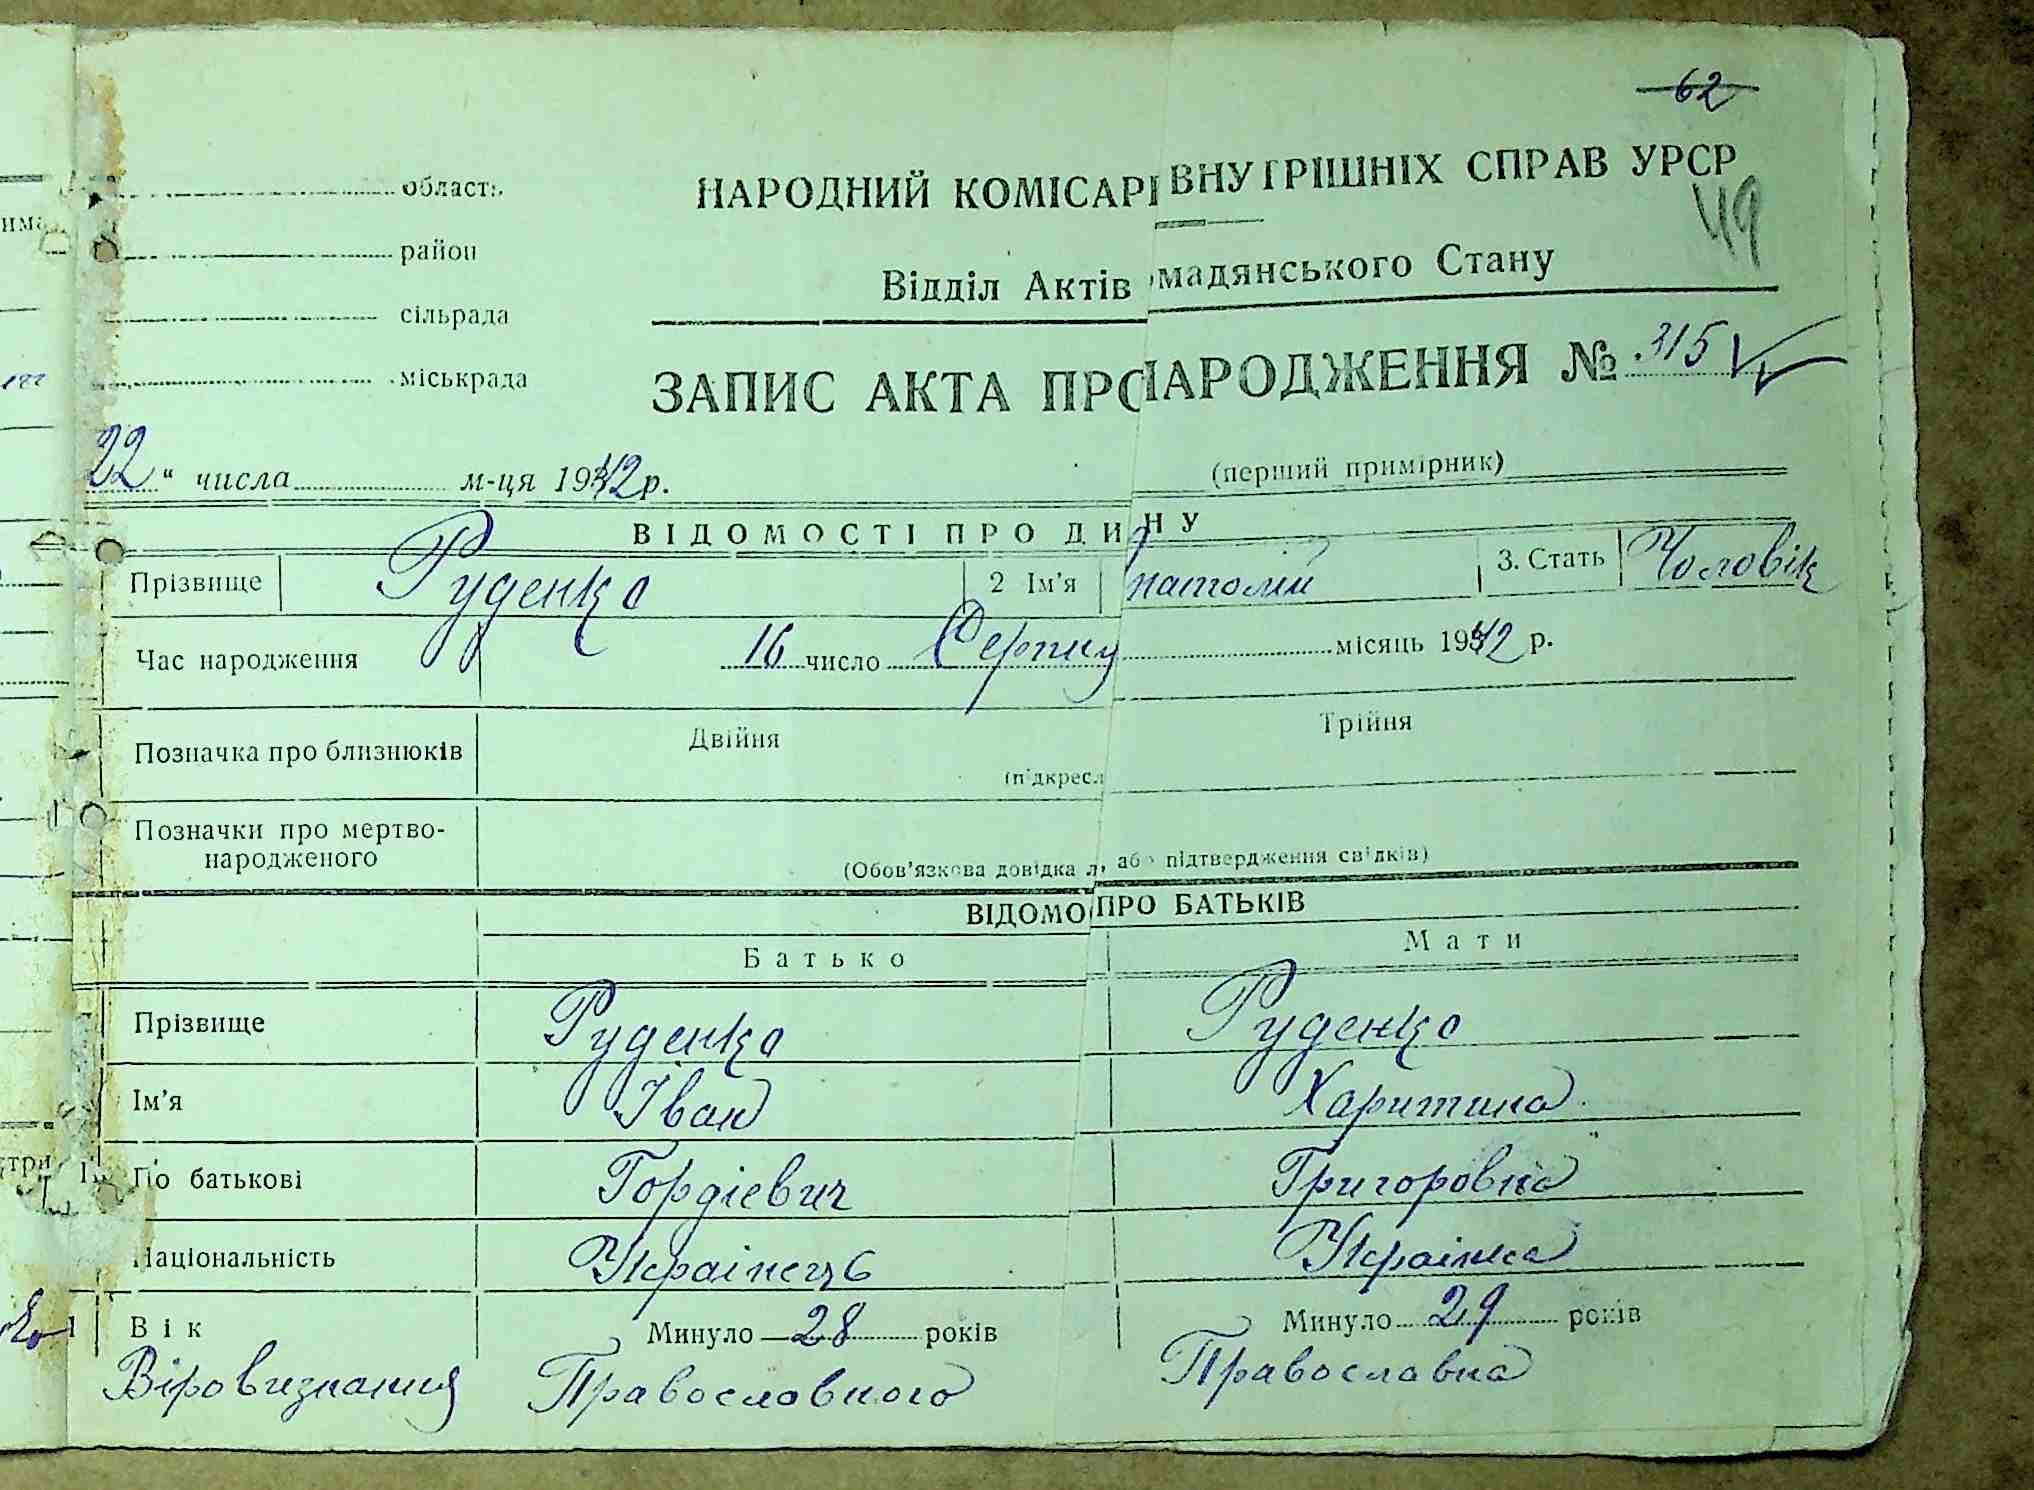 62
область
НАРОДНИЙ КОМІСАРІ ВНУТРІШНІХ СПРАВ УРСР
49
район
Відділ Актів мадянського Стану
сільрада
міськрада
ЗАПИС АКТА ПРО НАРОДЖЕННЯ № 315
22 " числа м-ця 1942 р.
(перший примірник)
ВІДОМОСТІ ПРО ДИ НУ
Прізвище Руденко 2 Ім'я натолій 3. Стать Чоловік
Час народження 16 число Серпня місяць 1942 р.
Позначка про близнюків Двійня Трійня
(підкресл
Позначки про мертво-
народженого
(Обов'язкова довідка л, або підтвердження свідків)
ВІДОМО ПРО БАТЬКІВ
Батько Мати
Прізвище Руденко Руденко
Ім'я Іван Харитина
По батькові Гордієвич Григоровна
Національність Українець Українка
Вік Минуло 28 років Минуло 29 років
Віровизнання Православного Православна